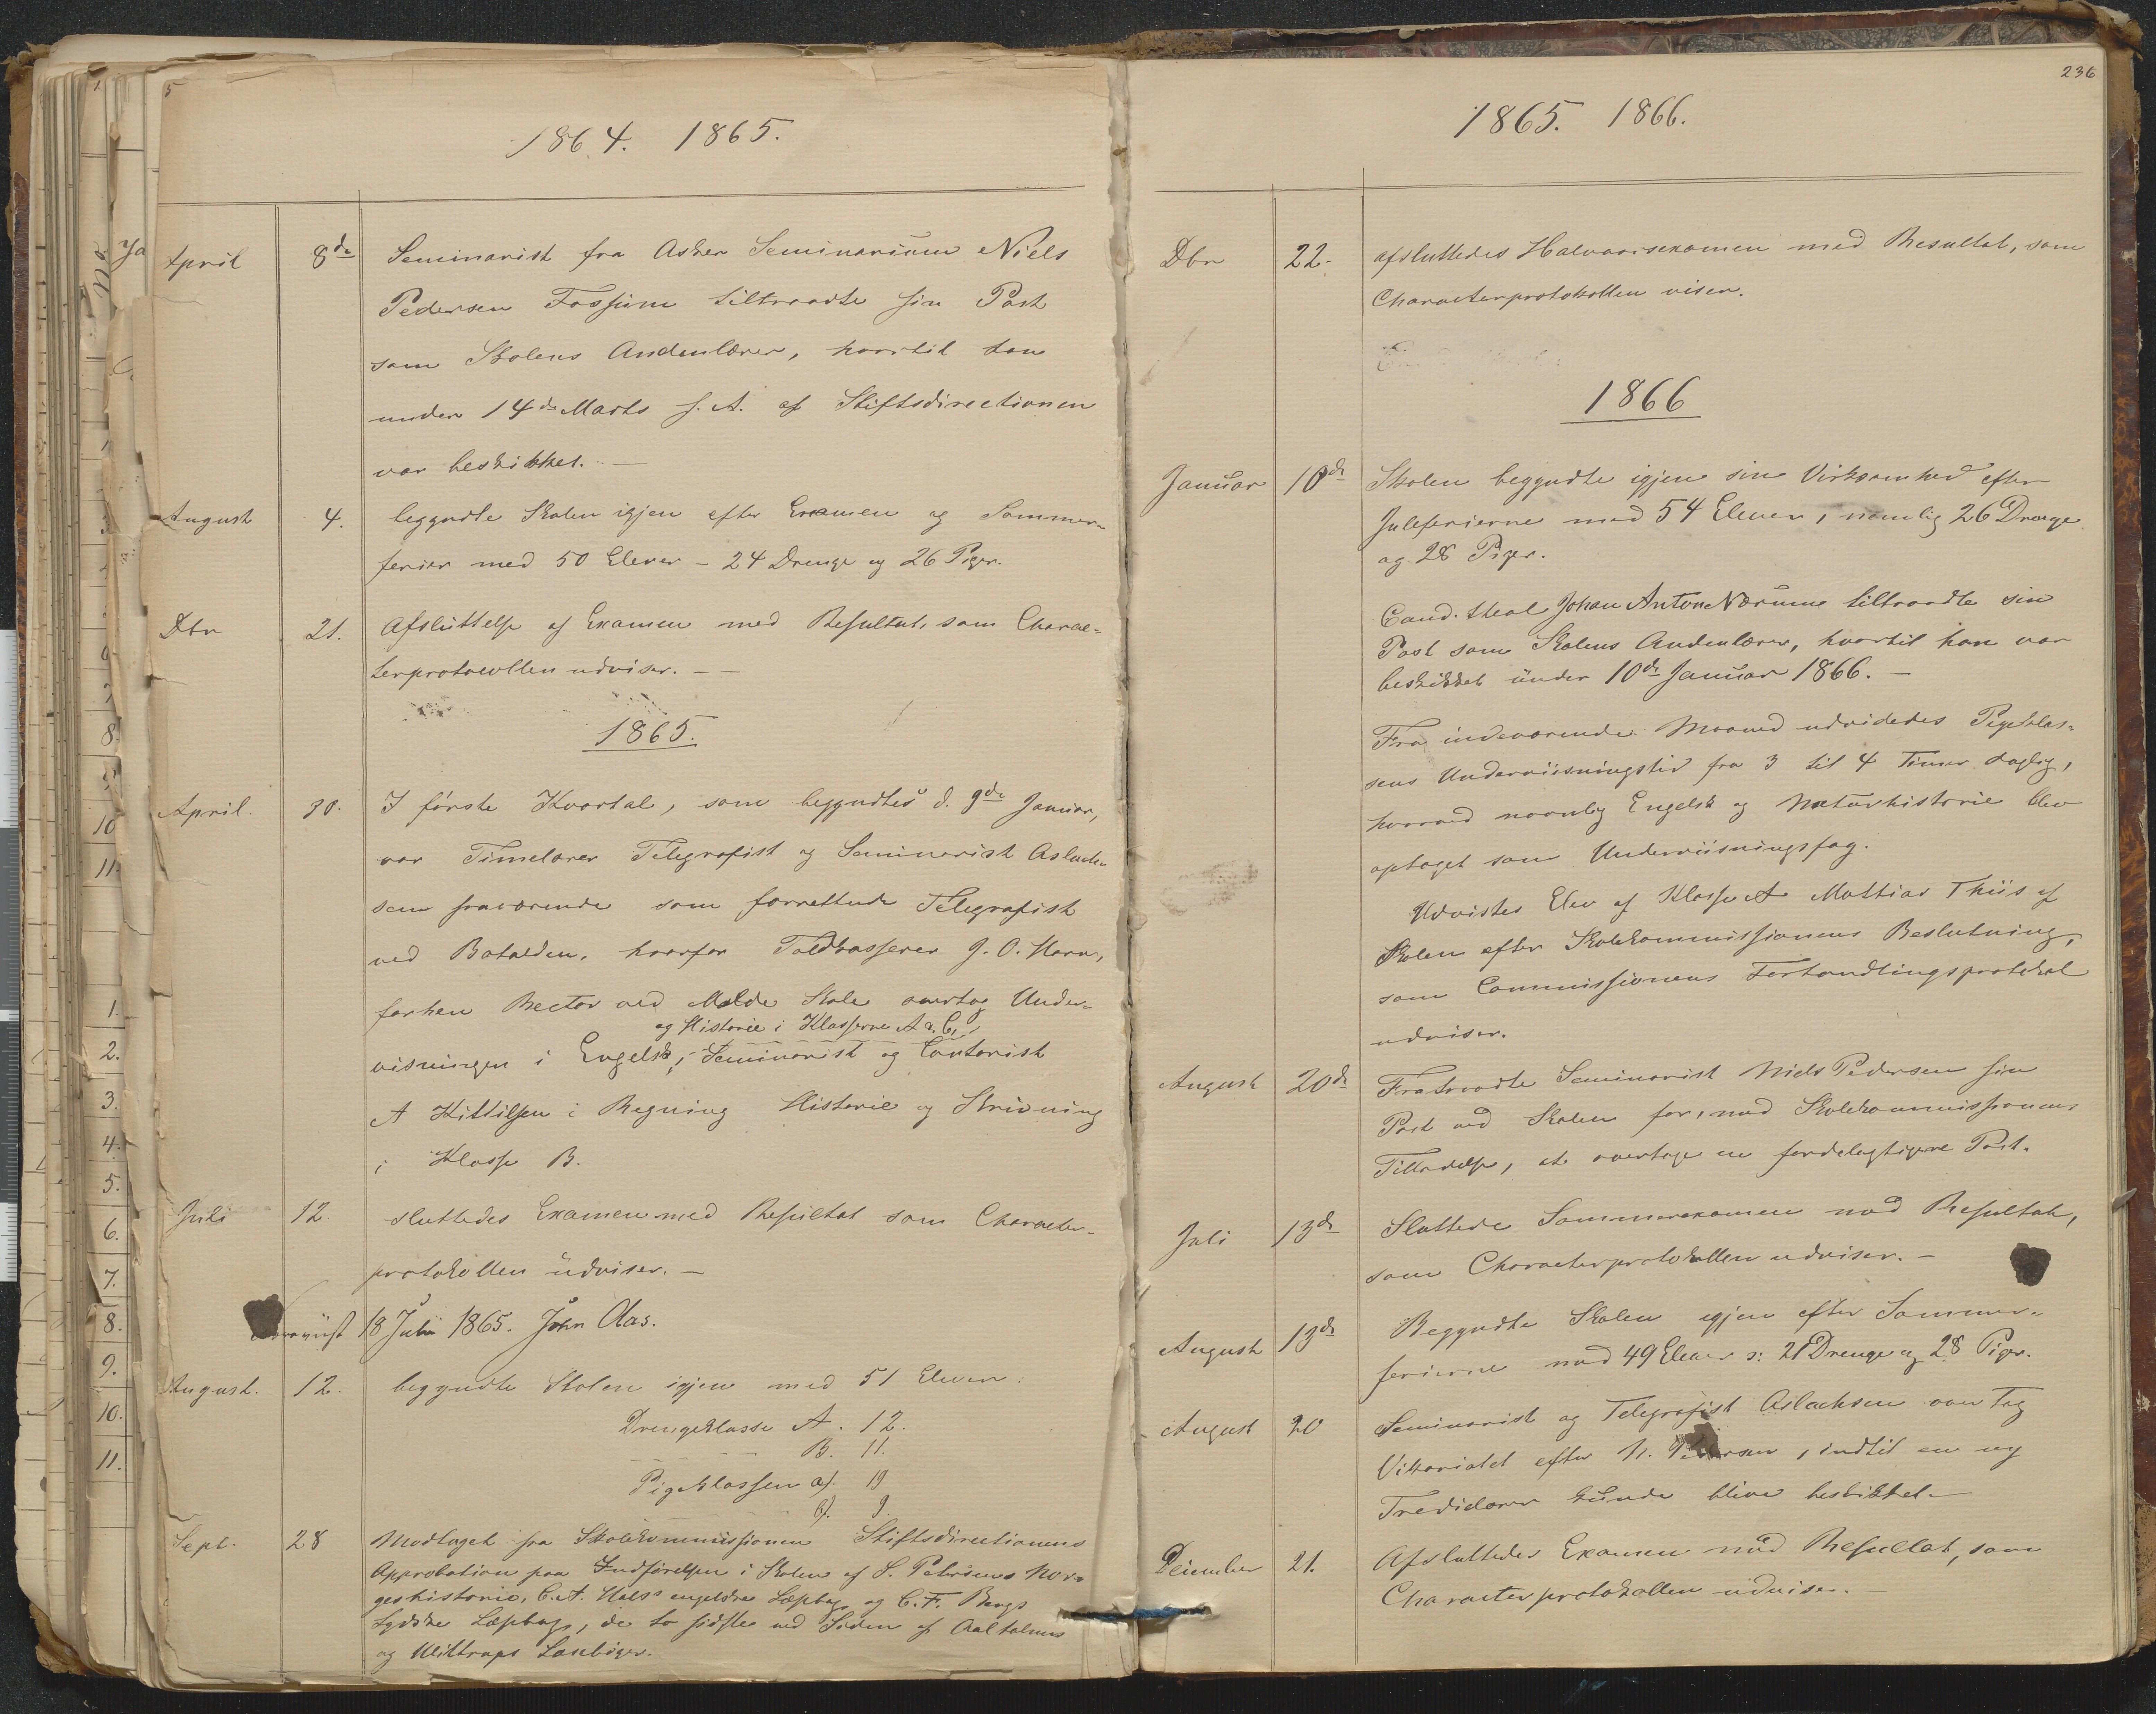 1864. 1865.
April 8de Seminarist fra Asker Seminarium Niels
Pedersen Fossum tiltraadte sin Post
som Skolens Andenlærer, hvortil han
under 14de Marts s. A. af Stiftsdirectionen
var beskikket. —
August 4. begyndte Skolen igjen efter Examen og Sommer-
ferier med 50 Elever - 24 Drenge og 26 Piger.
Dbr 21. Afsluttelse af Examen med Resultat, som Charac-
terprotocollen udviser. —
1865.
April. 30. I første Kvartal, som begyndtes d. 9de Januar,
var Timelærer Telegrafist og Seminarist Aslach-
sen fraværende som forrettende Telegrafist
ved Batalden, hvorfor Toldkasserer J. O. Horn,
forhen Rector ved Molde Skole overtog Under-
og Historie i Klasserne A a. C,
visningen i Engelsk, Seminarist og Contorist
A Kittilsen i Regning Historie og Skrivning
i Klasse B.
Juli 12. sluttedes Examen med Resultat som Character-
protokollen udviser. —
18 Juli 1865. John Aas.
August. 12. begyndte Skolen igjen med 51 Elever:
Drengeklasse A. 12.
B. 11.
Pigeklassen a). 19
b). 9.
Sept. 28 Modtaget fra Skolekommissionen Stiftsdirectionens
Approbation paa Indførelsen i Skolen af S. Petersens Nor-
geshistorie, C. A. engelske Læsebog og C. F. Bergs
tydske Læsebog, de to sidste ved Siden af
og Læsebøger.
236
1865. 1866.
Dbr 22. afsluttedes Halvaarsexamen med Resultat, som
Characterprotokollen viser.
1866
Januar 10de Skolen begyndte igjen sin Virksomhed efter
Juleferierne med 54 Elever, nemlig 26 Drenge
og 28 Piger.
Cand. theol Johan Anton Nærum tiltraadte sin
Post som Skolens Andenlærer, hvortil han var
beskikket under 10de Januar 1866. —
Fra indeværende Maaned udvidedes Pigeklas-
sens Underviisningstid fra 3 til 4 Timer daglig,
hvorved navnlig Engelsk og Naturhistorie blev
optaget som Underviisningsfag.
Udvistes Elev af Klasse A Mathias Thiis af
Skolen efter Skolekommissionens Beslutning,
som Commissionens Forhandlingsprotokol
udviser.
August 20de Fratraadte Seminarist Niels Pedersen sin
Post ved Skolen for, med Skolekommissionens
Tilladelse, at overtage en fordelagtigere Post.
Juli 13de Sluttede Sommerexamen med Resultat,
som Characterprotokollen udviser. —
August 13de Begyndte Skolen igjen efter Sommer-
ferierne med 49 Elever ɔ: 21 Drenge og 28 Piger.
August 20 Seminarist og Telegrafist Aslachsen overtog
Vikariatet efter N. Pedersen, indtil en ny
Tredielærer kunde blive beskikket —
December 21. Afsluttedes Examen med Resultat, som
Characterprotokollen udviser. —